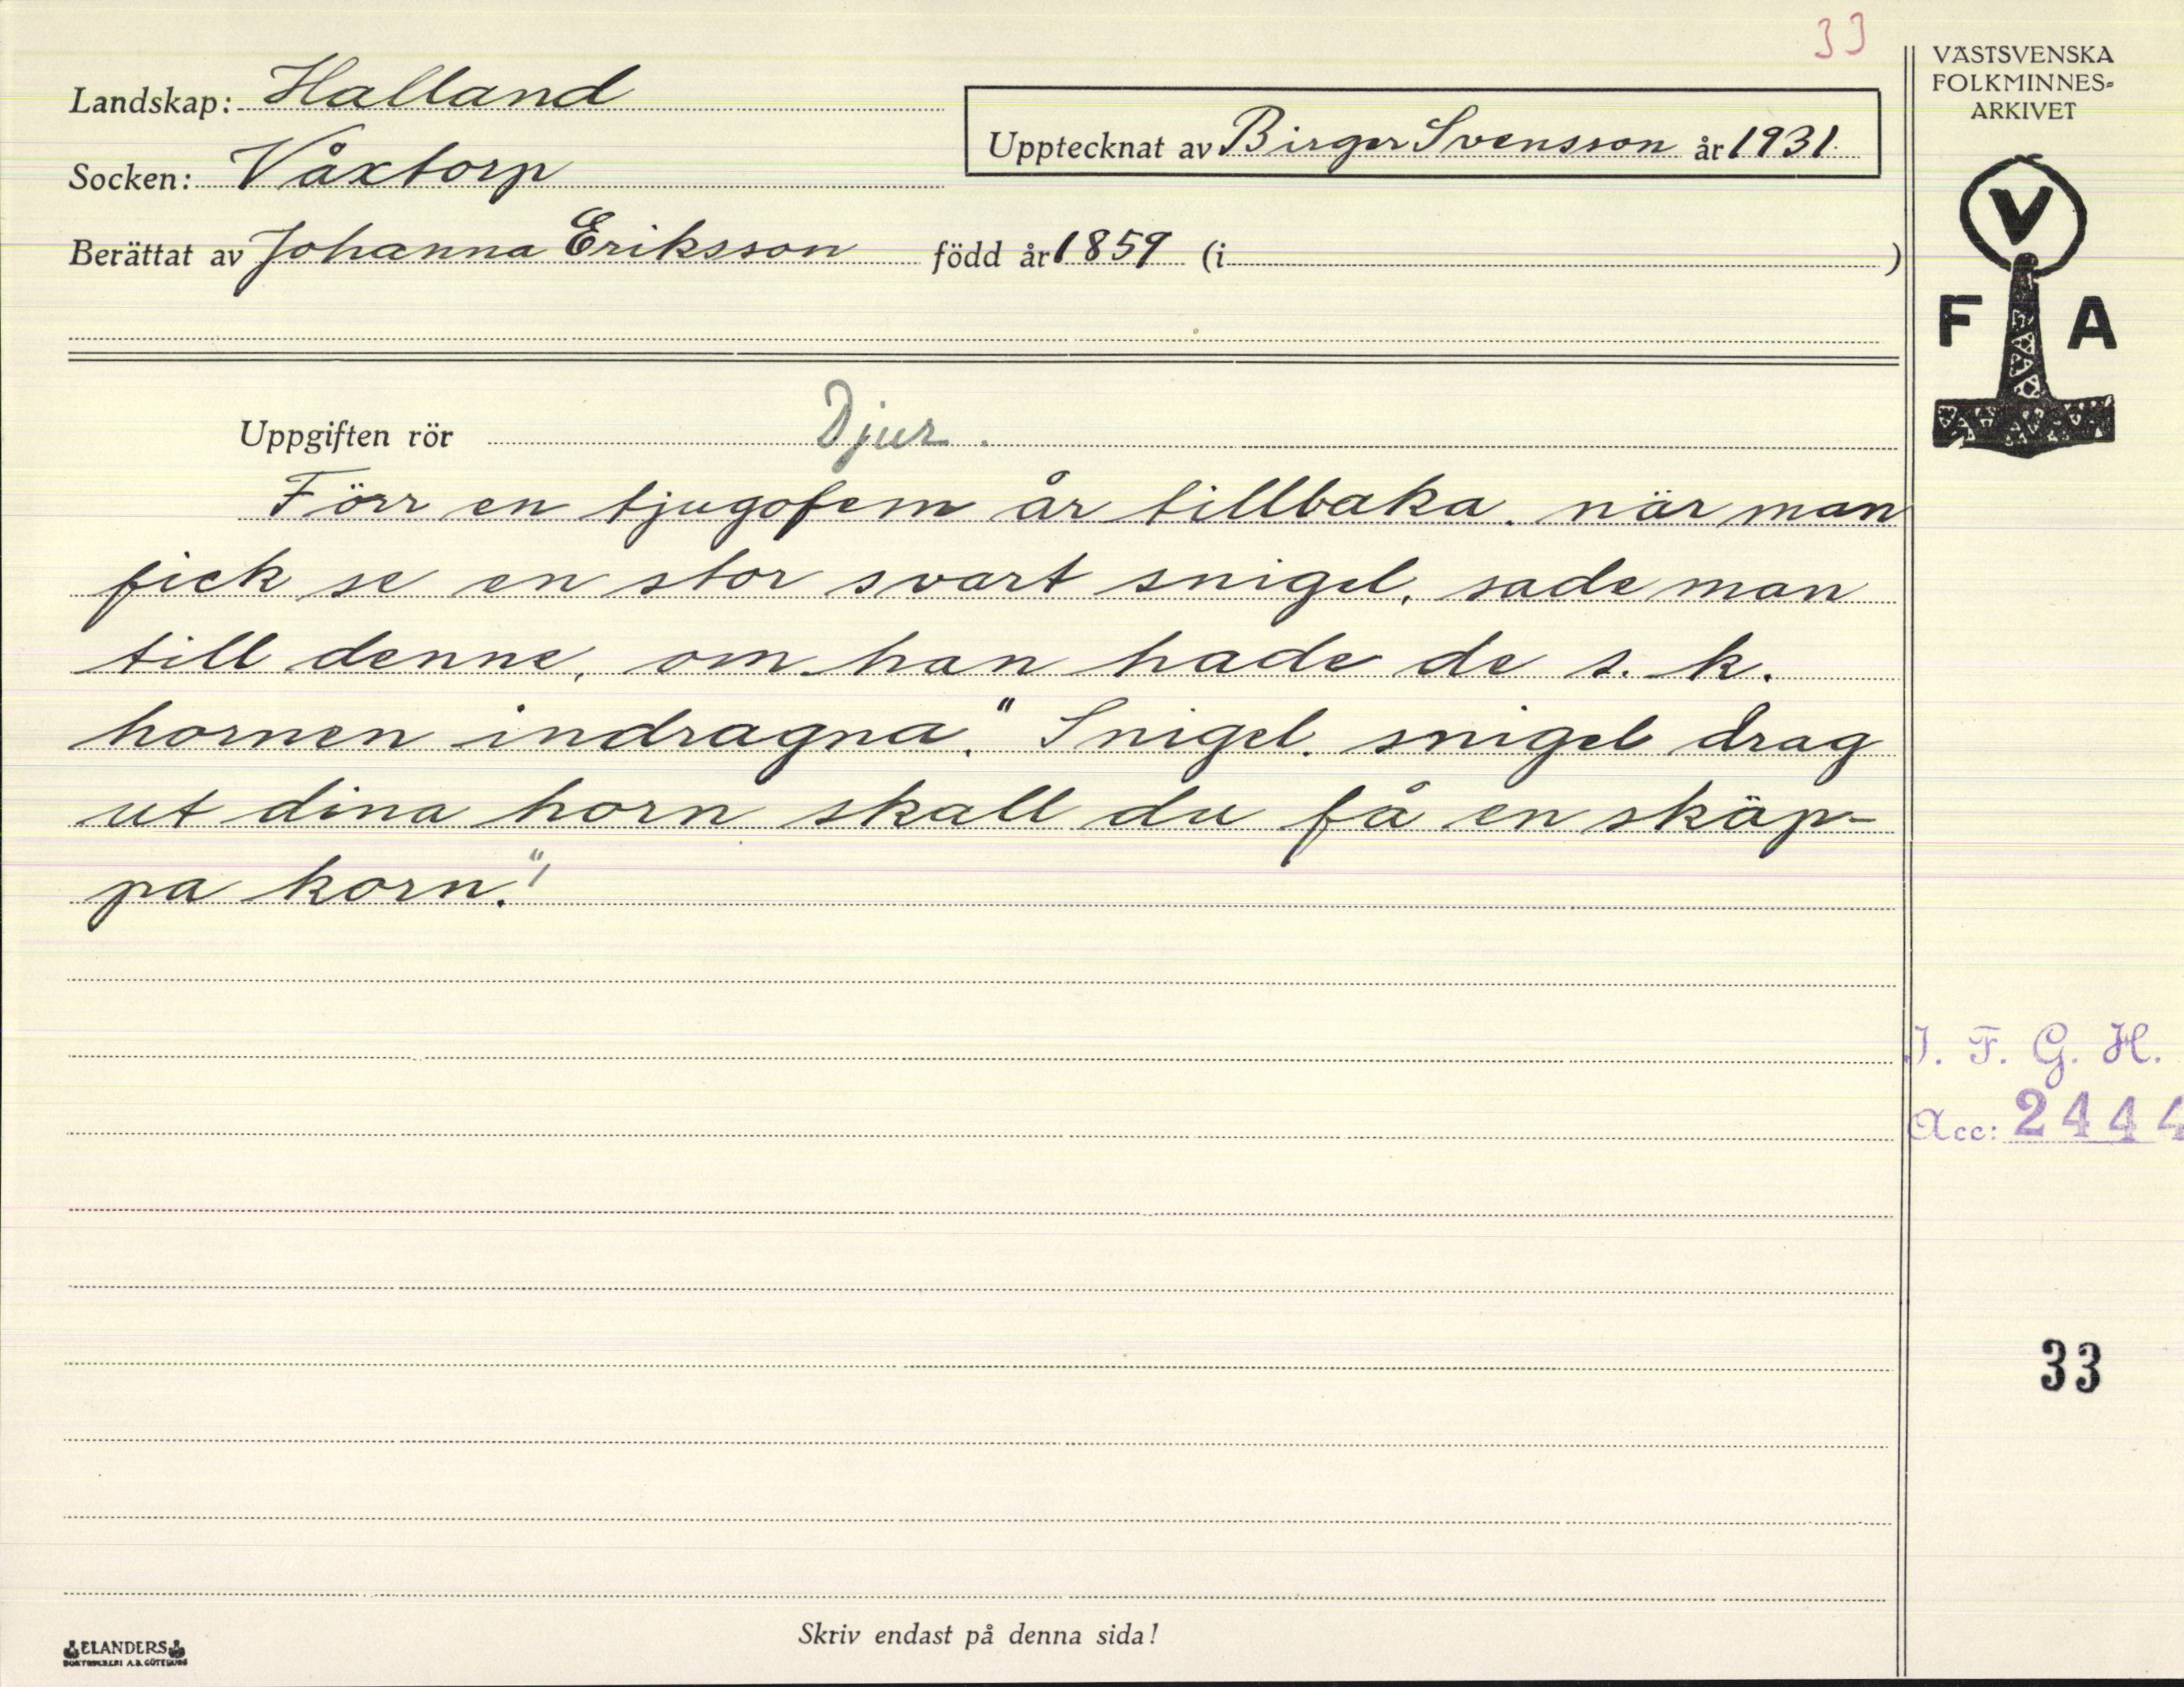 33
VÄSTSVENSKA
FOLKMINNES-
ARKIVET
Landskap: Halland
Upptecknat av Birger Svensson år 1931.
Socken: Våxtorp
Berättat av Johanna Eriksson född år 1859 (i )
V
F A
Uppgiften rör Djur.
Förr en tjugofem år tillbaka. när man
fick se en stor svart snigel, sade man
till denne, om han hade de s. k.
hornen indragna." Snigel. snigel drag
ut dina horn skall du få en skäp-
pa korn."
I. F. G. H.
Acc: 2444
33
Skriv endast på denna sida!
ELANDERS
BOKTRYCKERI A.B. GÖTEBORG